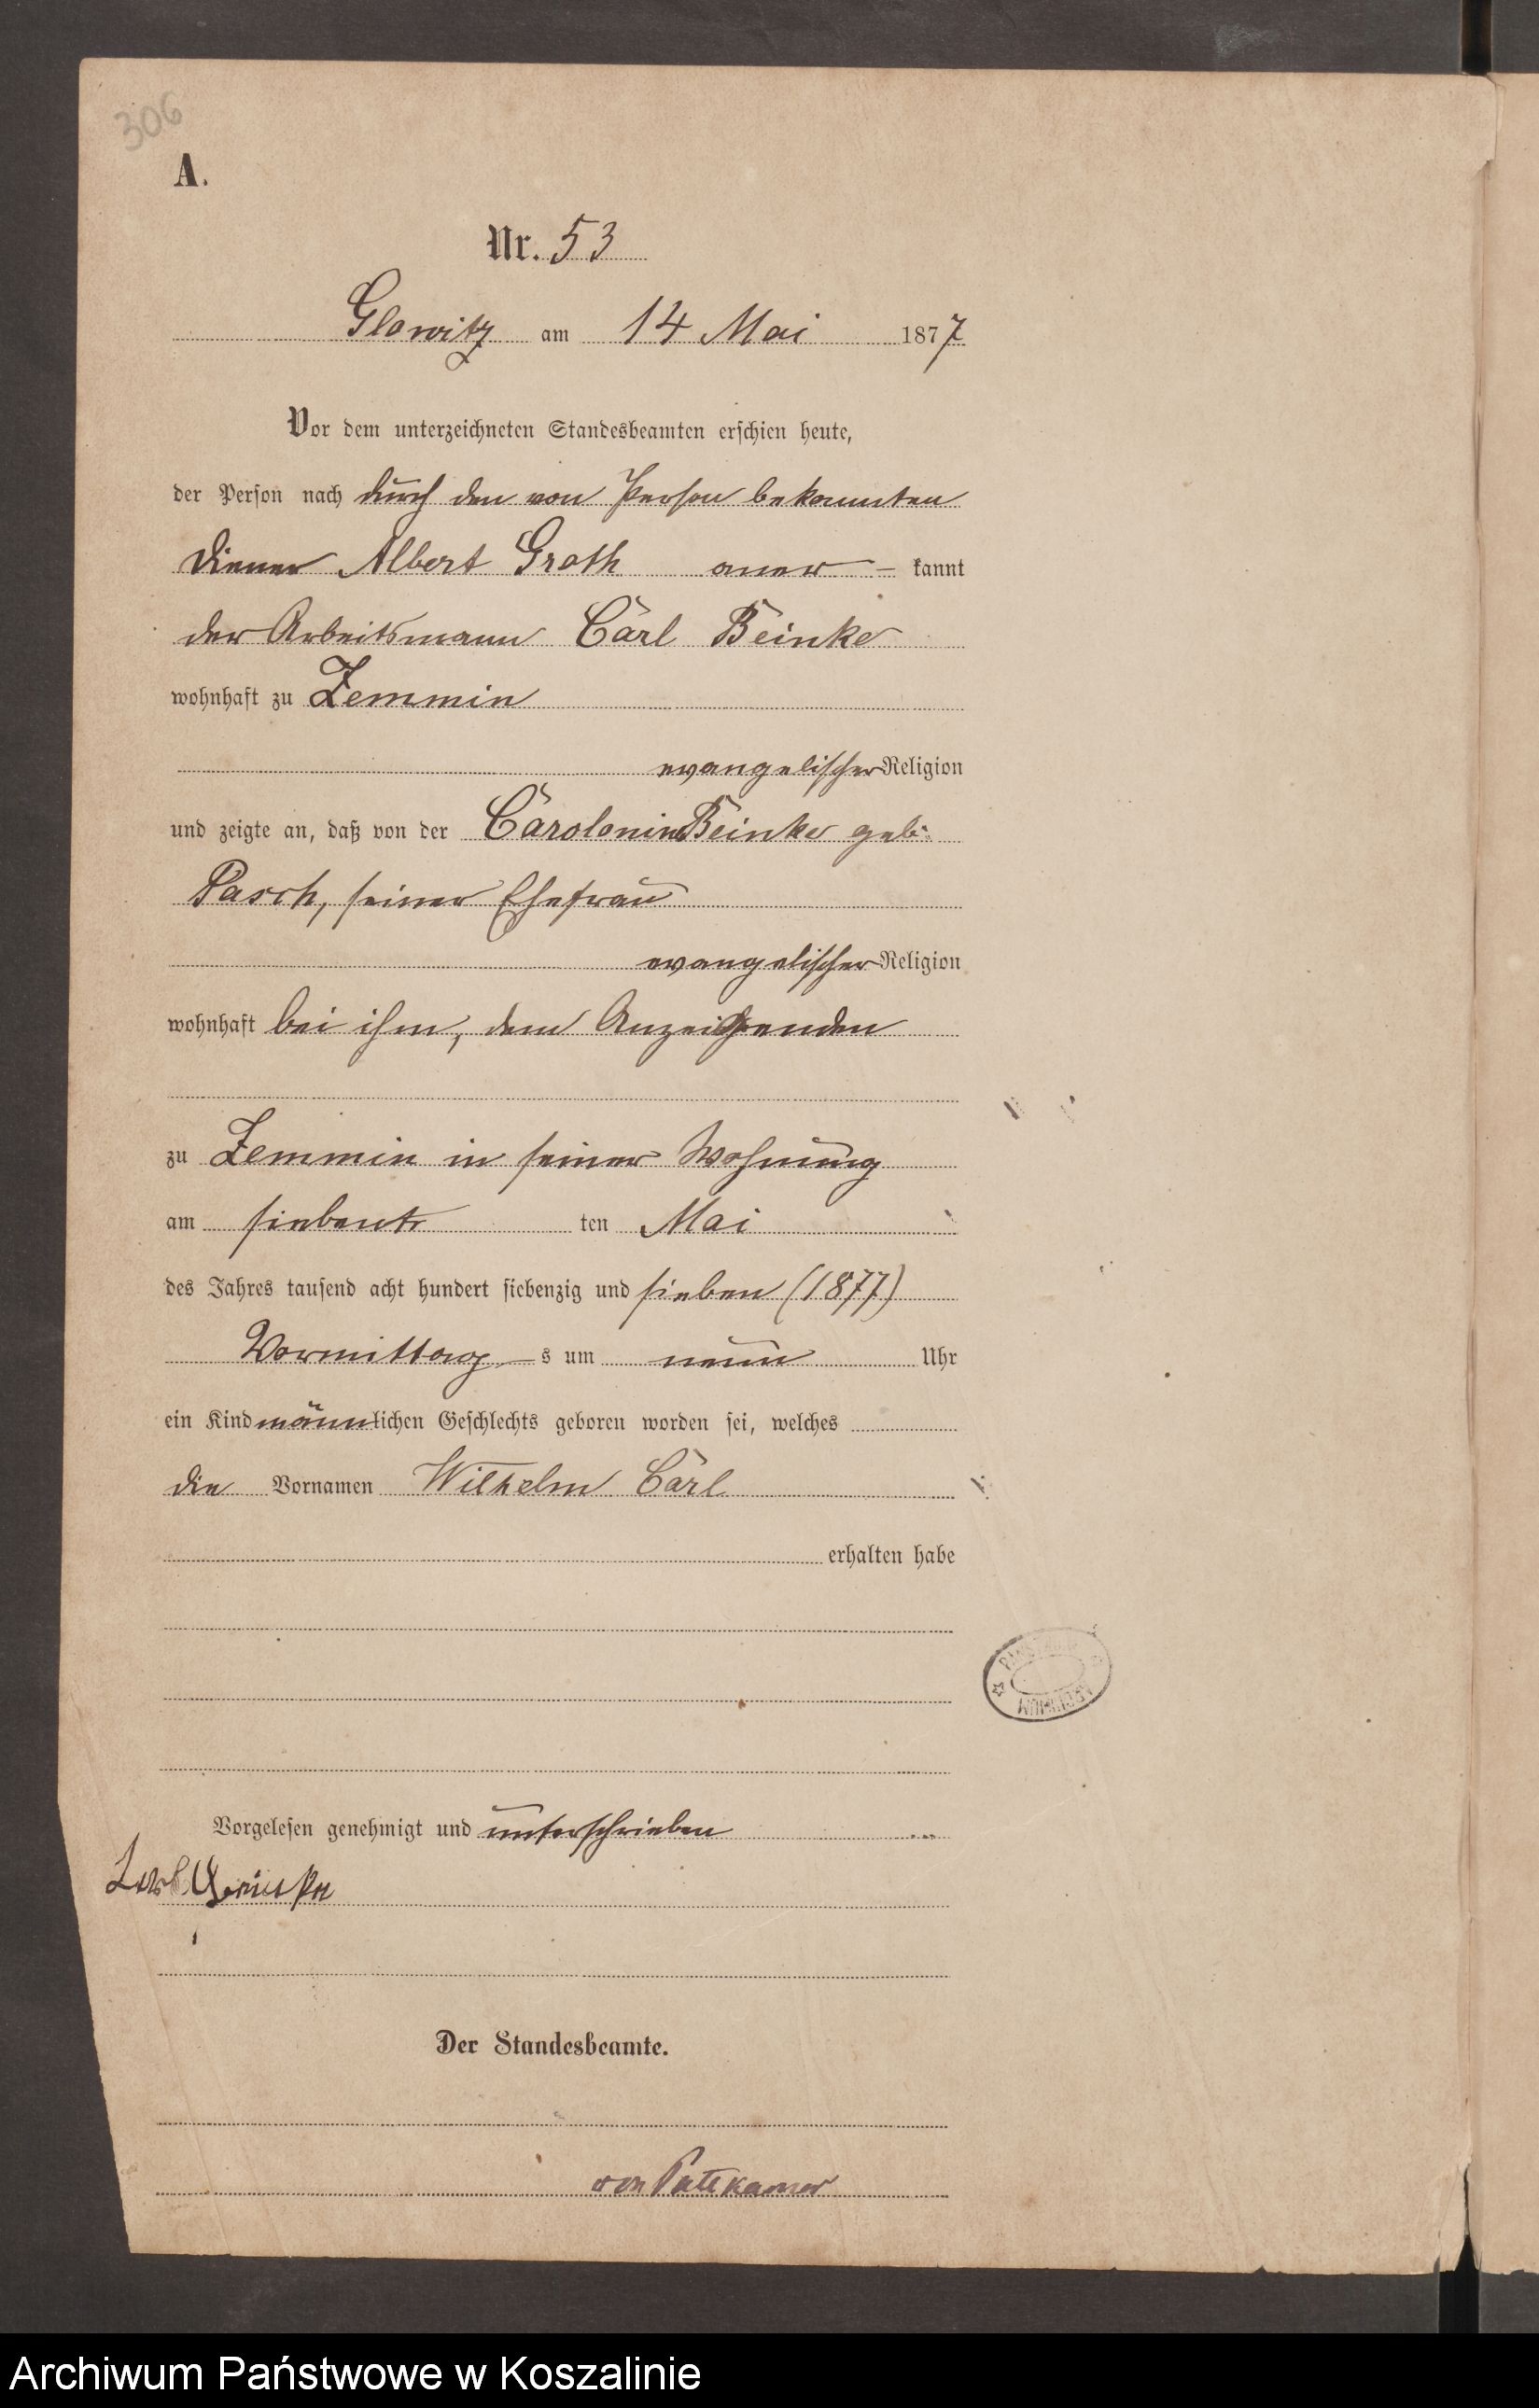 306
A.
Nr. 53
Glowitz am 14 Mai 1877
Vor dem unterzeichneten Standesbeamten erschien heute,
der Person nach durch den von Person bekannten
Diener Albert Groth aner - kannt
der Arbeitsmann Carl Beinke
wohnhaft zu Zemmin
evangelischer Religion
und zeigte an, daß von der Carolonine Beinke geb.
Pasch, seiner Ehefrau
evangelischer Religion
wohnhaft bei ihm, dem Anzeigenden
zu Zemmin in seiner Wohnung
am siebent ten Mai
des Jahres tausend acht hundert siebenzig und sieben (1877)
Vormittag s um neun Uhr
ein Kind männlichen Geschlechts geboren worden sei, welches
die Vornamen Wilhelm Carl
erhalten habe
Vorgelesen genehmigt und unterschrieben
Der Standesbeamte.
von Puttkamer
Archiwum Państwowe w Koszalinie